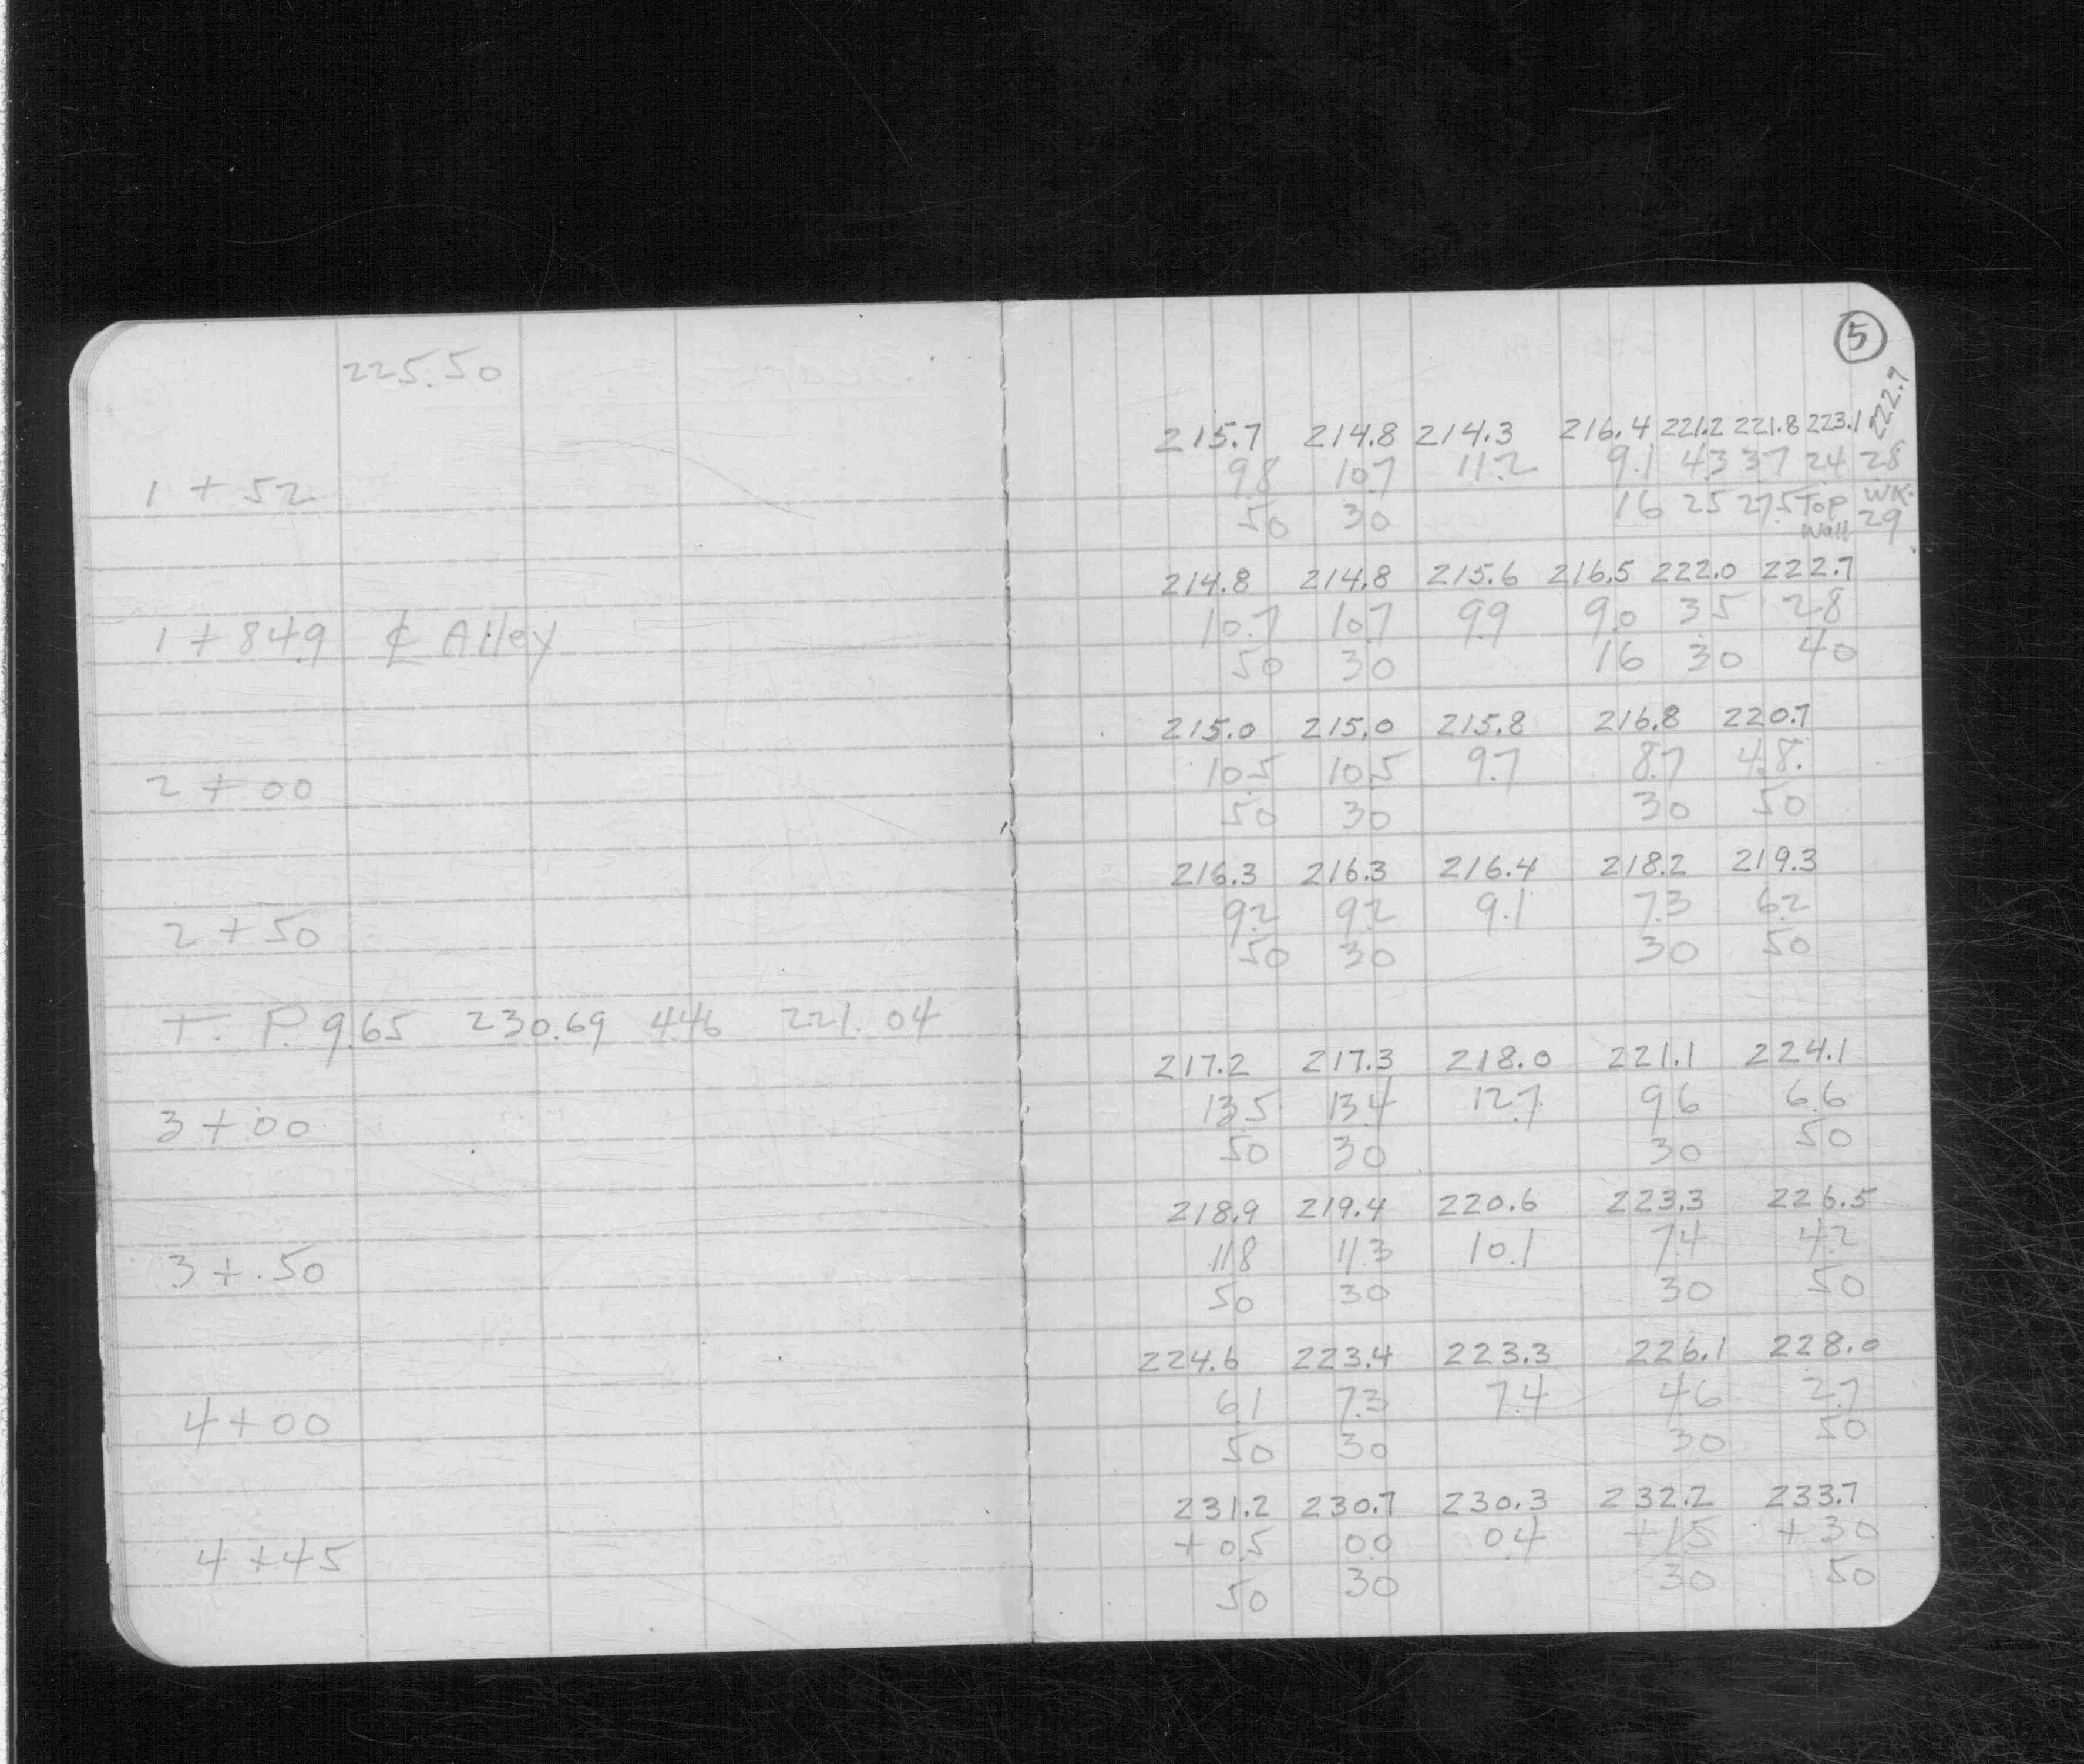 5
225.50
222.7
215.7 214.8 214.3 216.4 221.2 221.8 223.1
9.8 10.7 11.2 9.1 4.3 3.7 2.4 2.8
1 + 52
50 30 16 25 27.5 Top Wall WK. 29
214.8 214.8 215.6 216.5 222.0 222.7
1 + 84.9 ℄ Alley
10.7 10.7 9.9 9.0 3.5 2.8
50 30 16 30 40
215.0 215.0 215.8 216.8 220.7
2 + 00
10.5 10.5 9.7 8.7 4.8
50 30 30 50
216.3 216.3 216.4 218.2 219.3
2 + 50
9.2 9.2 9.1 7.3 6.2
50 30 30 50
T. P. 9.65 230.69 4.46 221.04
217.2 217.3 218.0 221.1 224.1
3 + 00
13.5 13.4 12.7 9.6 6.6
50 30 30 50
218.9 219.4 220.6 223.3 226.5
3 + 50
11.8 11.3 10.1 7.4 4.2
50 30 30 50
224.6 223.4 223.3 226.1 228.0
4 + 00
6.1 7.3 7.4 4.6 2.7
50 30 30 50
231.2 230.7 230.3 232.2 233.7
4 + 45
+0.5 0.0 0.4 +1.5 +3.0
50 30 30 50